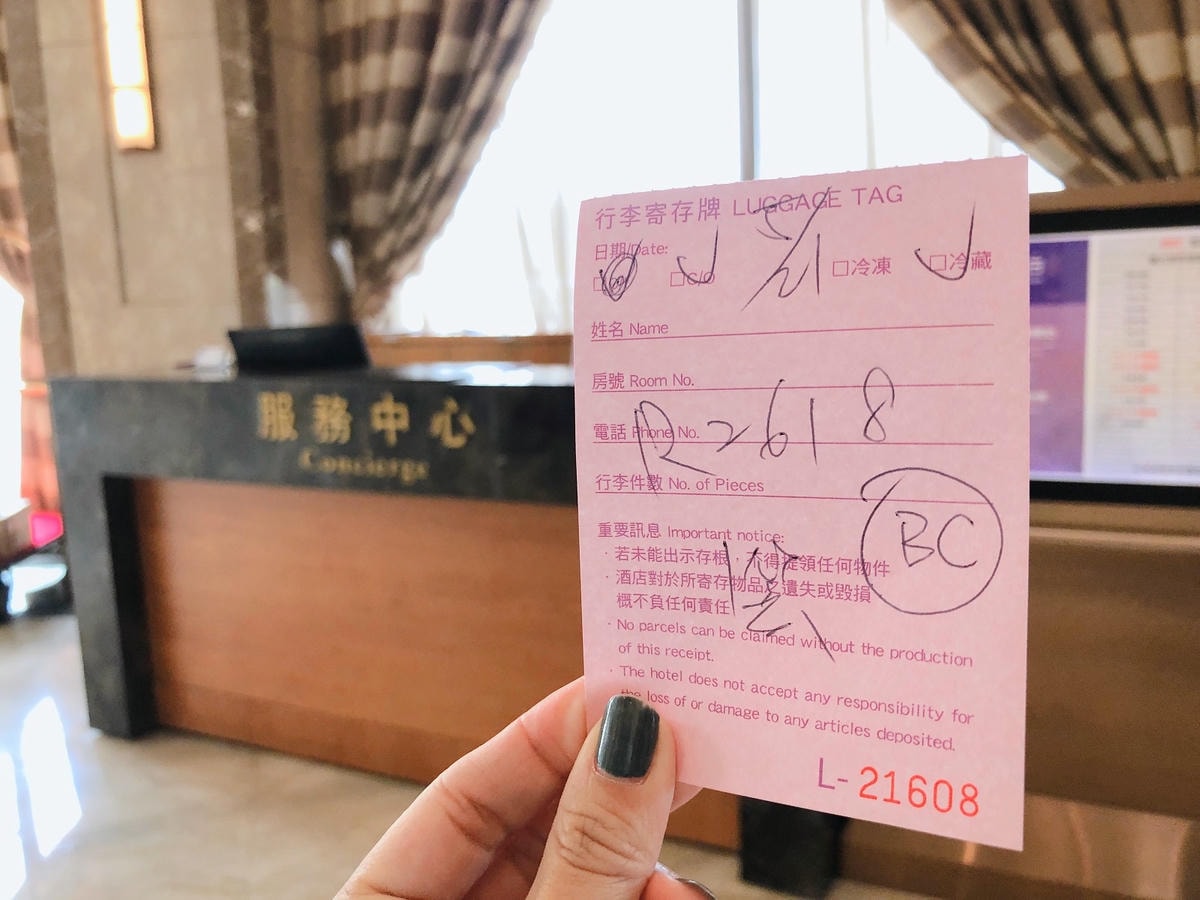 行李寄存牌 LUGGAGE TAG
日期/Date:
□C/O □冷凍 □冷藏
姓名 Name
房號 Room No.
R2618
電話 Phone No.
行李件數 No. of Pieces
BC
重要訊息 Important notice:
· 若未能出示存根，不得提領任何物件
· 酒店對於所寄存物品之遺失或毀損
概不負任何責任
· No parcels can be claimed without the production
of this receipt.
· The hotel does not accept any responsibility for
the loss of or damage to any articles deposited.
L-21608
服務中心
Concierge